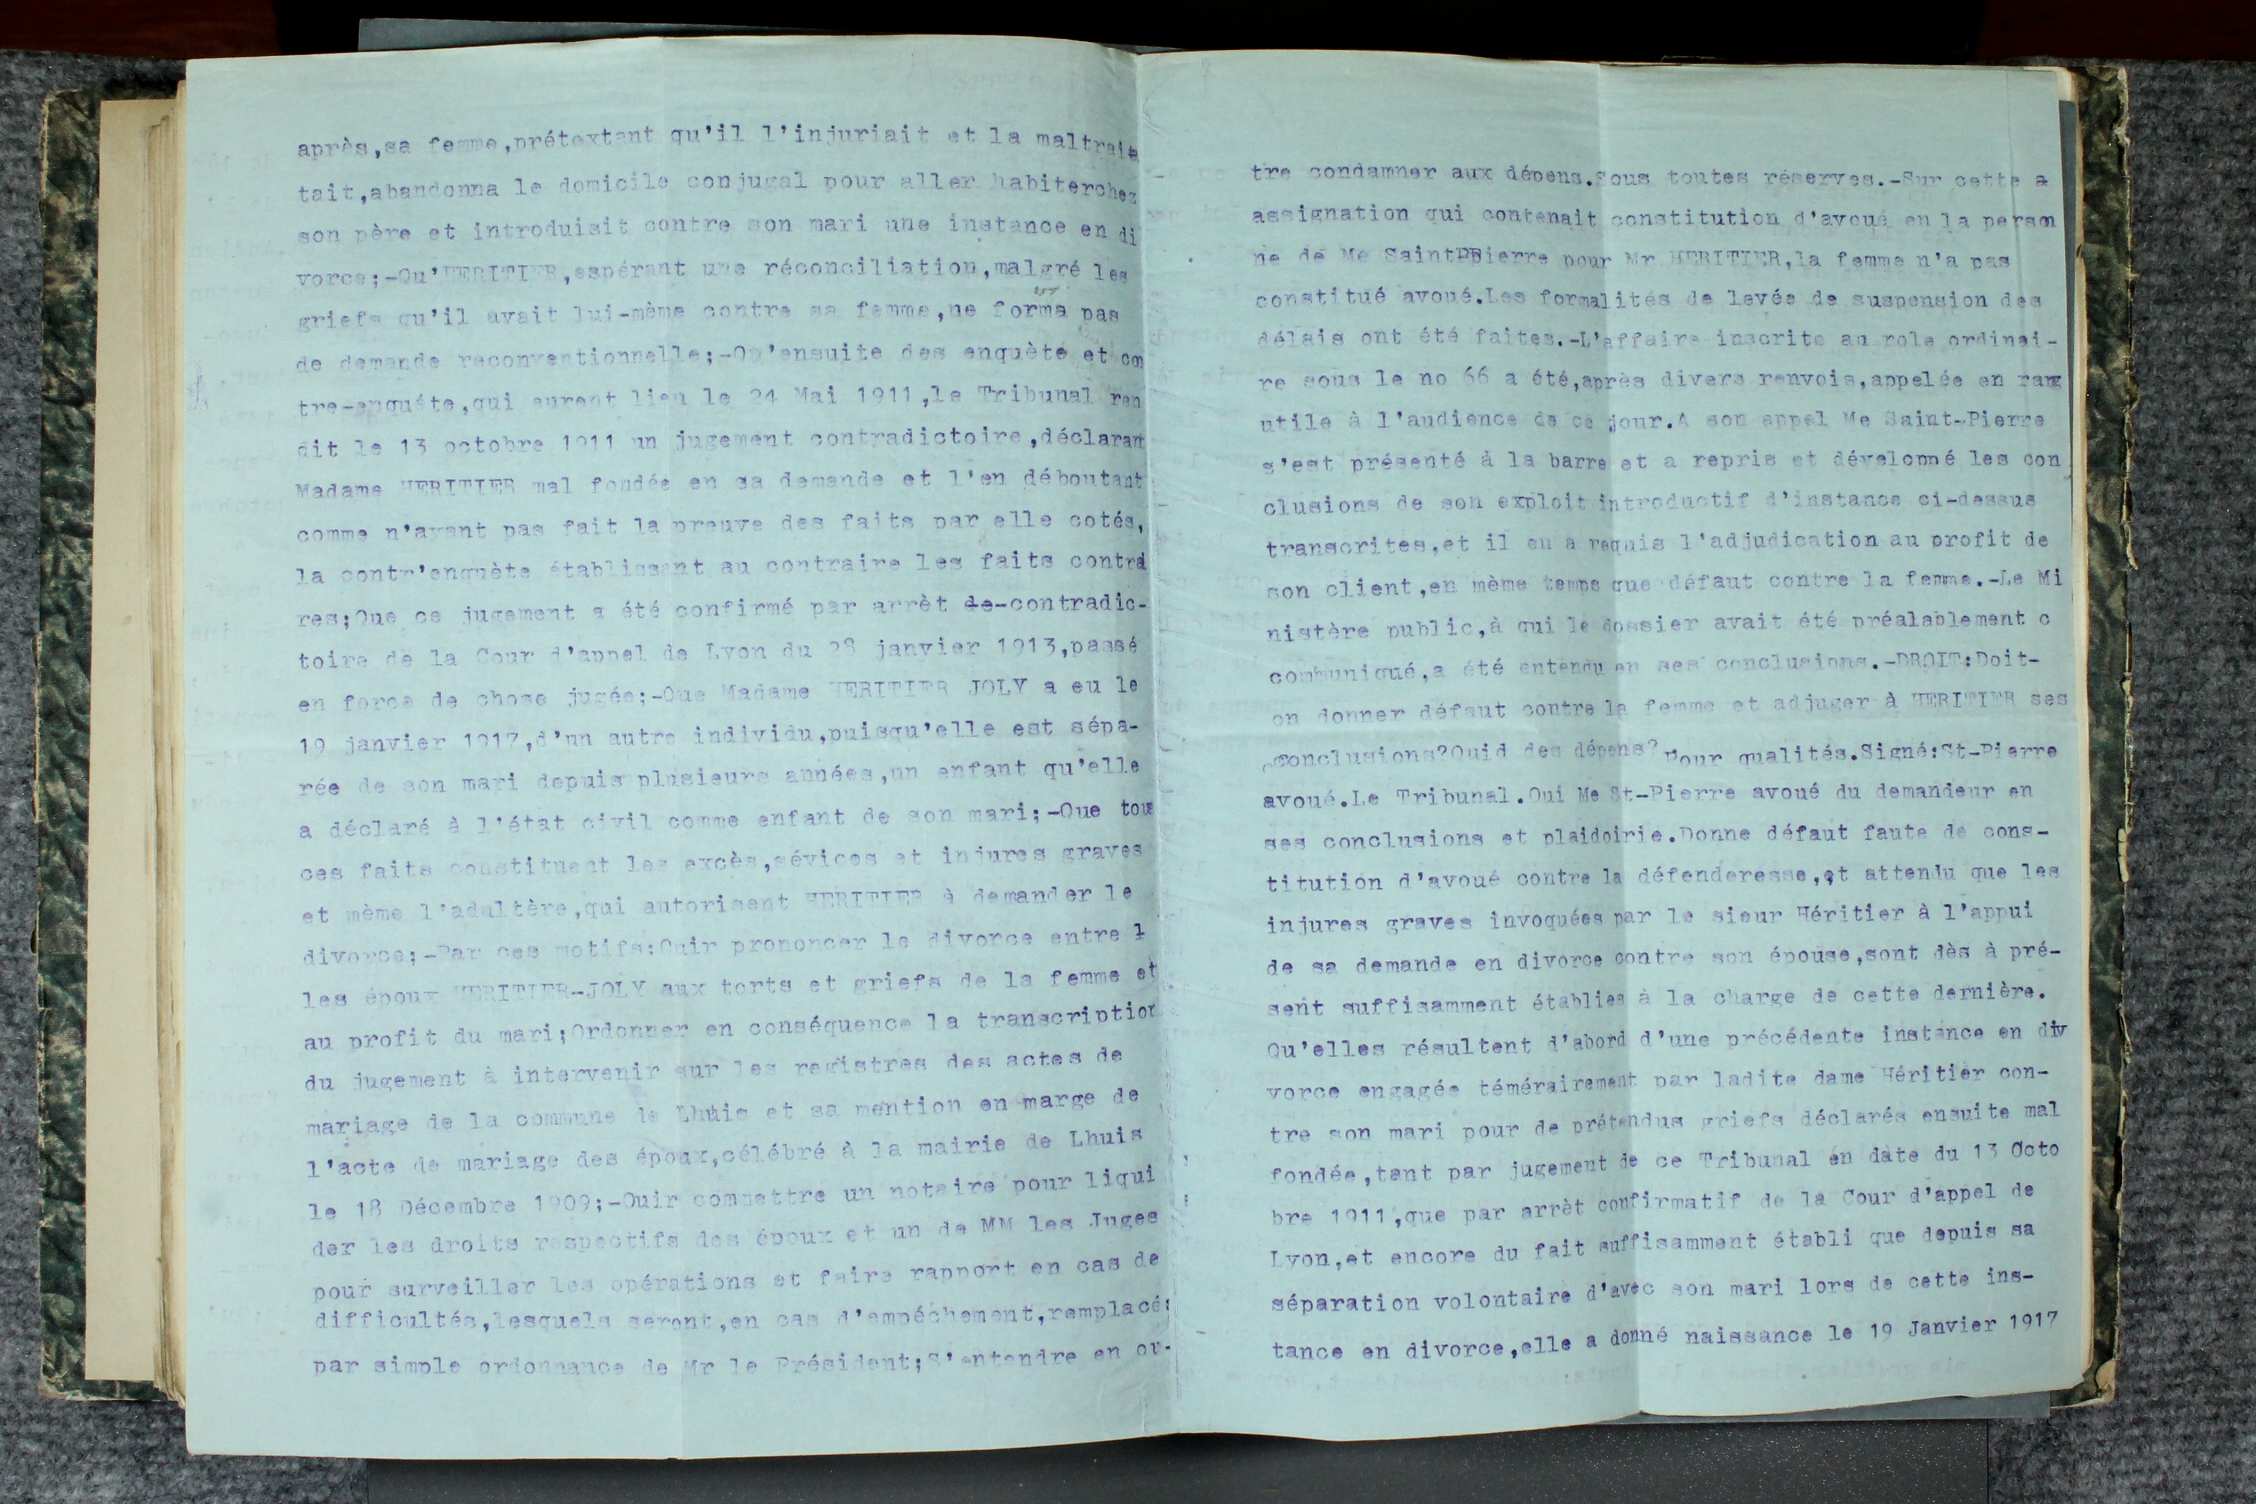 après,sa femme,prétextant qu'il l'injuriait et la maltrait
tait,abandonna le domicile conjugal pour aller habiterchez
son père et introduisit contre son mari une instance en di
vorce;-Qu'HERITIER,espérant une réconciliation,malgré les
griefs qu'il avait lui-mème contre sa femme,ne forma pas
de demande reconventionnelle;-Qu'ensuite des enquète et con
tre-enquéte,qui eurent lieu le 24 Mai 1911,le Tribunal ren
dit le 13 octobre 1911 un jugement contradictoire,déclarant
Madame HERITIER mal fondée en sa demande et l'en déboutant
comme n'ayant pas fait la preuve des faits par elle cotés,
la contr'enquète établissant au contraire les faits contrai
res;Que ce jugement a été confirmé par arrèt de-contradic-
toire de la Cour d'appel de Lyon du 28 janvier 1913,passé
en force de chose jugée;-Que Madame HERITIER JOLY a eu le
19 janvier 1917,d'un autre individu,puisqu'elle est sépa-
rée de son mari depuis plusieurs années,un enfant qu'elle
a déclaré à l'état civil comme enfant de son mari;-Que tous
ces faits constituent les excès,sévices et injures graves
et mème l'adultère,qui autorisent HERITIER à demander le
divorce;-Par ces motifs:Ouir prononcer le divorce entre l
les époux HERITIER-JOLY aux torts et griefs de la femme et
au profit du mari;Ordonner en conséquence la transcription
du jugement à intervenir sur les registres des actes de
mariage de la commune de Lhuis et sa mention en marge de
l'acte de mariage des époux,célébré à la mairie de Lhuis
le 18 Décembre 1909;-Ouir commettre un notaire pour liqui
der les droits respectifs des époux et un de MM les Juges
pour surveiller les opérations et faire rapport en cas de
difficultés,lesquels seront,en cas d'empéchement,remplacés
par simple ordonnance de Mr le Président;S'entendre en ou-
tre condamner aux dépens.Sous toutes réserves.-Sur cette a
assignation qui contenait constitution d'avoué en la person
ne de Me Saint Pierre pour Mr HERITIER,la femme n'a pas
constitué avoué.Les formalités de levée de suspension des
délais ont été faites.-L'affaire inscrite au role ordinai-
re sous le no 66 a été,après divers renvois,appelée en rang
utile à l'audience de ce jour.A son appel Me Saint-Pierre
s'est présenté à la barre et a repris et développé les con
clusions de son exploit introductif d'instance ci-dessus
transcrites,et il en a requis l'adjudication au profit de
son client,en mème temps que défaut contre la femme.-Le Mi
nistère public,à qui le dossier avait été préalablement c
communiqué,a été entendu en ses conclusions.-DROIT:Doit-
on donner défaut contre la femme et adjuger à HERITIER ses
conclusions?Quid des dépens?Pour qualités.Signé:St-Pierre
avoué.Le Tribunal.Oui Me St-Pierre avoué du demandeur en
ses conclusions et plaidoirie.Donne défaut faute de cons-
titution d'avoué contre la défenderesse,et attendu que les
injures graves invoquées par le sieur Héritier à l'appui
de sa demande en divorce contre son épouse,sont dès à pré-
sent suffisamment établies à la charge de cette dernière.
Qu'elles résultent d'abord d'une précédente instance en div
vorce engagée témérairement par ladite dame Héritier con-
tre son mari pour de prétendus griefs déclarés ensuite mal
fondée,tant par jugement de ce Tribunal en date du 13 Octo
bre 1911,que par arrèt confirmatif de la Cour d'appel de
Lyon,et encore du fait suffisamment établi que depuis sa
séparation volontaire d'avec son mari lors de cette ins-
tance en divorce,elle a donné naissance le 19 Janvier 1917